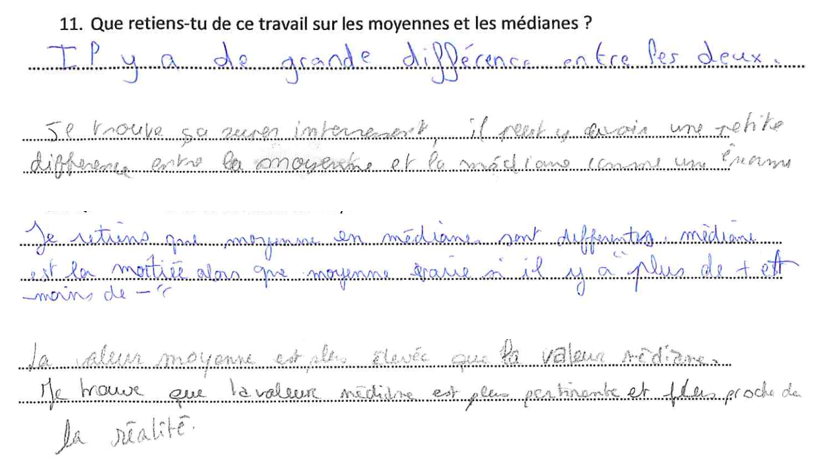 11. Que retiens-tu de ce travail sur les moyennes et les médianes ?
Il y a de grande différence entre les deux.
Je trouve sa super interressent, il peut y avoir une petite
difference entre la moyenne et la médiane comme une énorme
Je retiens que moyenne en médiane sont differentes. médiane
est la moitiée alors que moyenne varie si il y a "plus de + et
moins de -"
La valeur moyenne est plus élevée que la valeur médiane.
Je trouve que la valeur médiane est plus pertinente et plus proche de
la réalité.